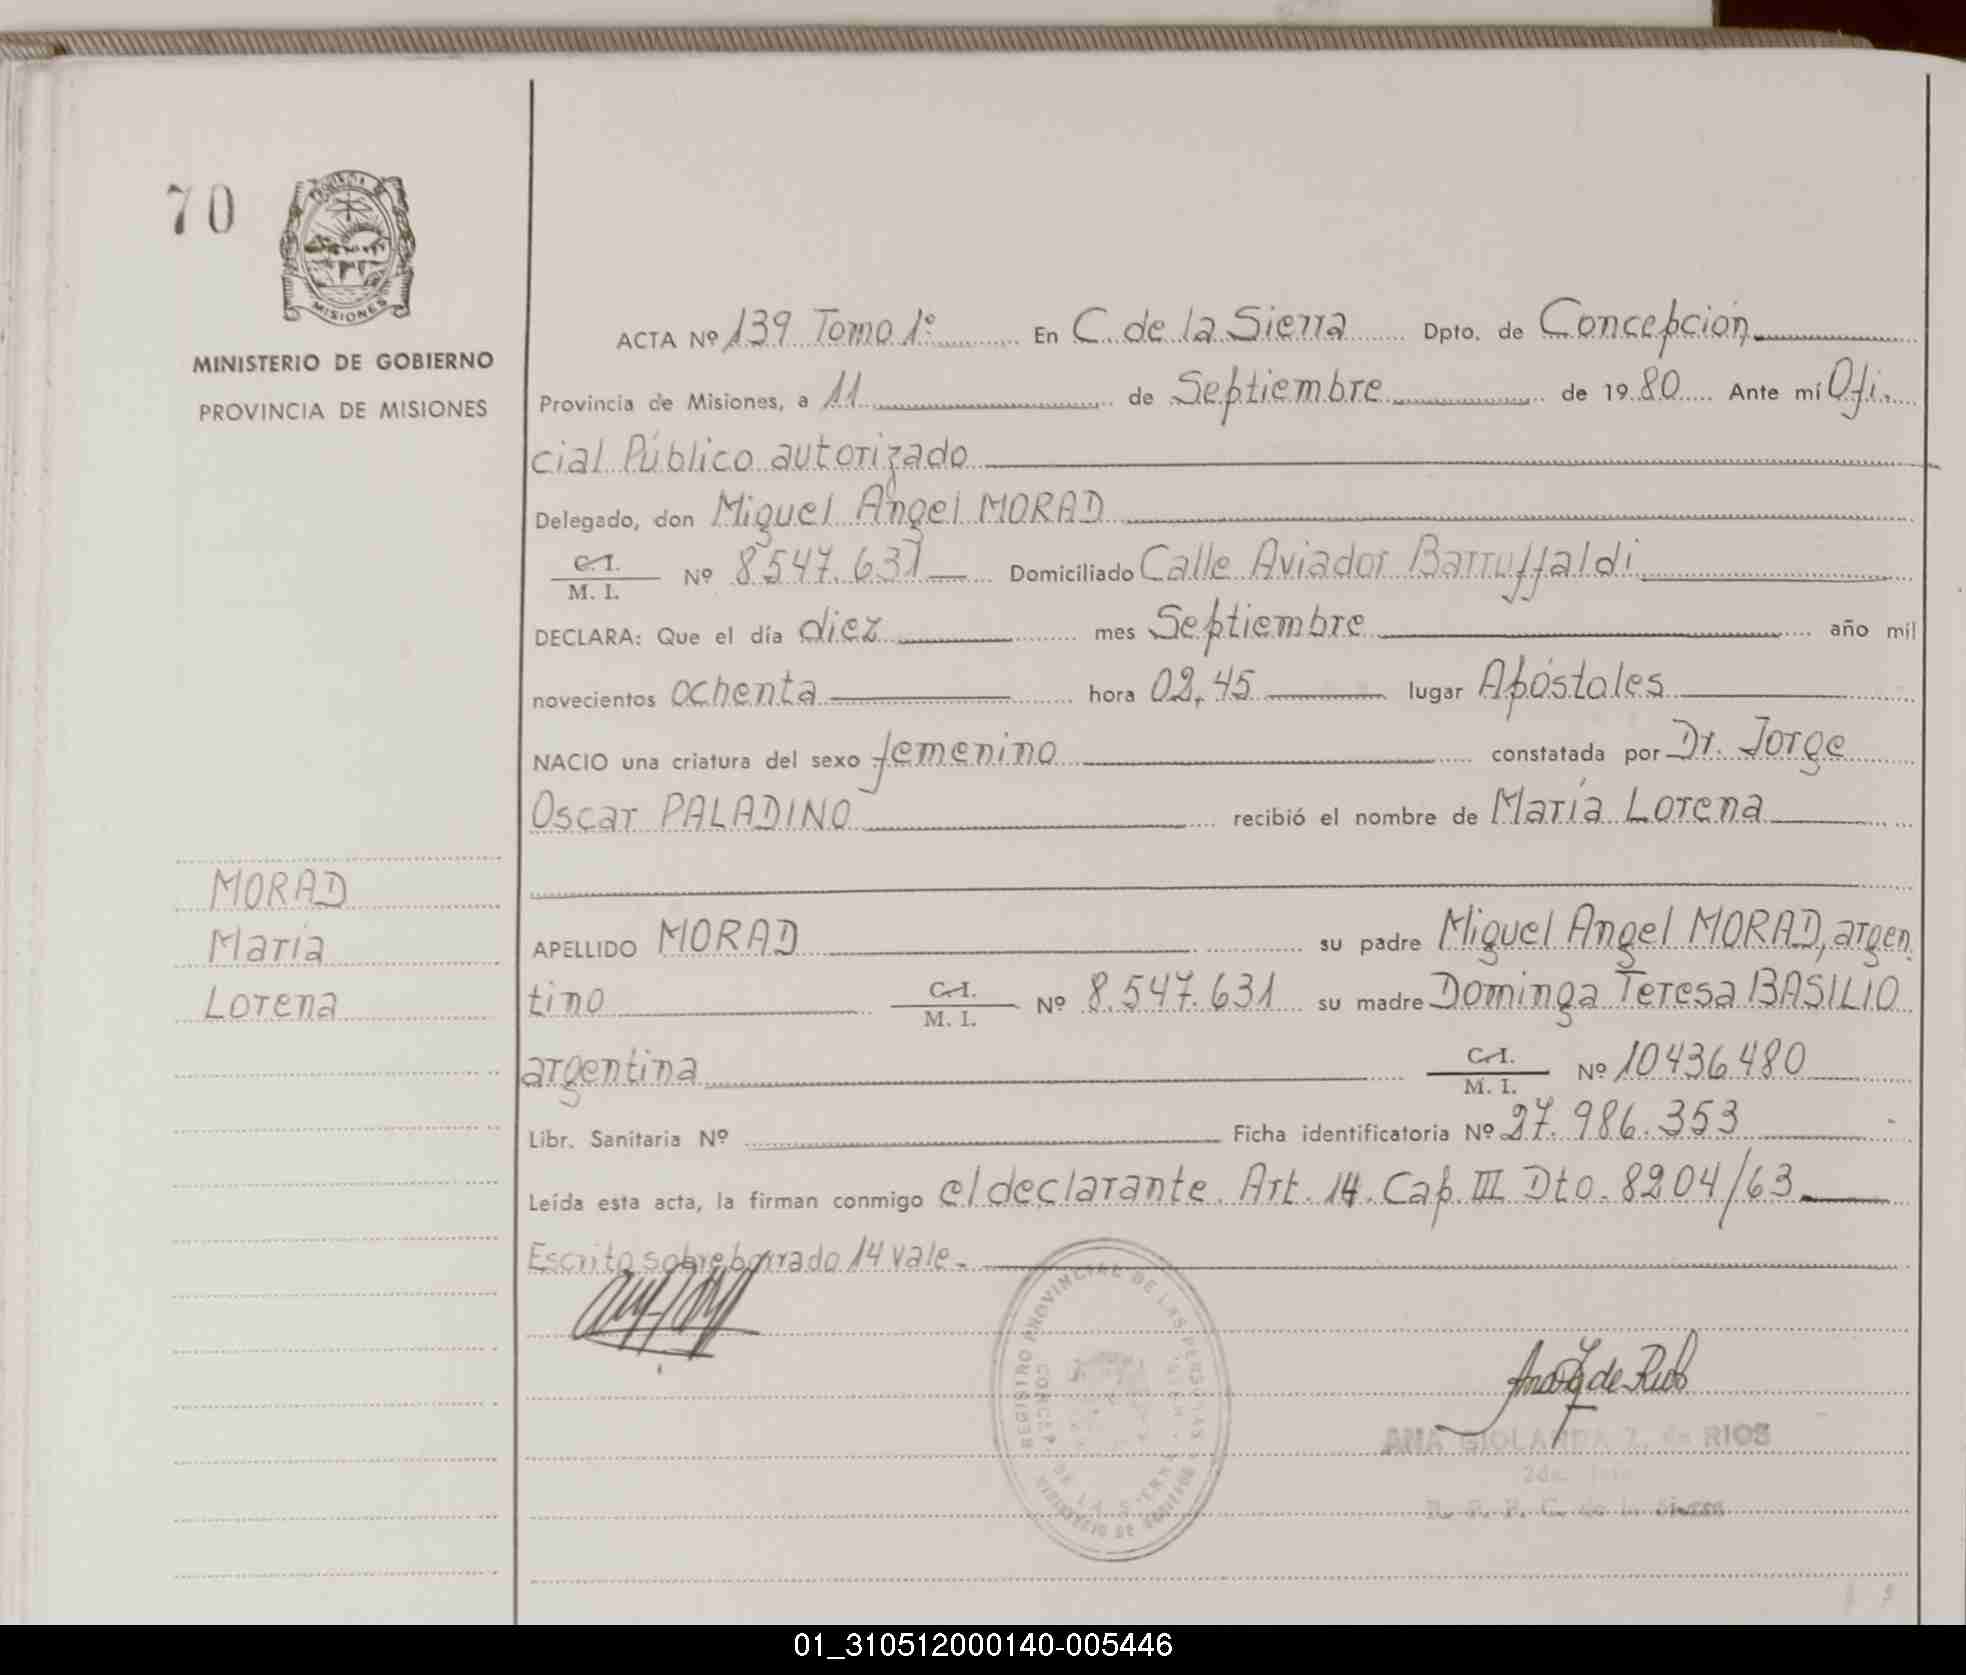 70
PROVINCIA DE
MISIONES
MINISTERIO DE GOBIERNO
PROVINCIA DE MISIONES
MORAD
María
Lorena
ACTA Nº 139 Tomo 1º En C. de la Sierra Dpto. de Concepción
Provincia de Misiones, a 11 de Septiembre de 1980 Ante mí Ofi.
cial Público autorizado
Delegado, don Miguel Angel MORAD
C.I.
M. I. Nº 8.547.631 Domiciliado Calle Aviador Barruffaldi
DECLARA: Que el día diez mes Septiembre año mil
novecientos ochenta hora 02,45 lugar Apóstoles
NACIO una criatura del sexo femenino constatada por Dr. Jorge
Oscar PALADINO recibió el nombre de María Lorena
APELLIDO MORAD su padre Miguel Angel MORAD, argen
tino C.I.
M. I. Nº 8.547.631 su madre Dominga Teresa BASILIO
argentina C.I.
M. I. Nº 10436480
Libr. Sanitaria Nº Ficha identificatoria Nº 27.986.353
Leída esta acta, la firman conmigo el declarante. Art. 14. Cap. III Dto. 8204/63
Escrito sobreborrado 14 vale.-
REGISTRO PROVINCIAL DE LAS PERSONAS
MINISTERIO DE GOBIERNO
CONCEP. DE LA SIERRA
de Rios
ANA GIOLANDA Z. de RIOS
C. de la Sierra
01_310512000140-005446